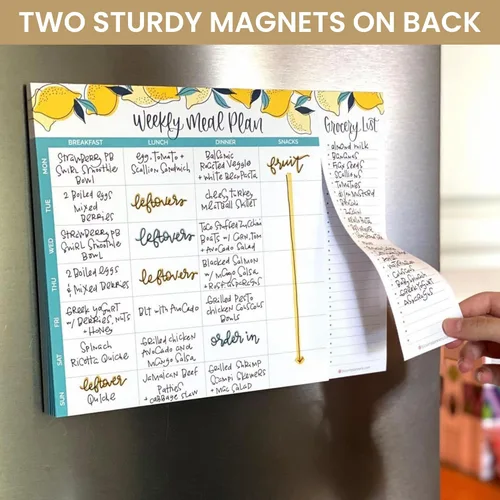 TWO STURDY MAGNETS ON BACK
Weekly Meal Plan
Grocery List
BREAKFAST LUNCH DINNER SNACKS
MON
Strawberry PB
Swirl Smoothie
Bowl
egg, Tomato +
Scallion Sandwich
Balsamic
Roasted Veggie
+ White Bean Pasta
fruit
TUE
2 Boiled eggs
Mixed
Berries
leftovers
Meatball Skillet
WED
Strawberry PB
Swirl Smoothie
Bowl
leftovers
Taco Stuffed Zucchini
Boats w/ Corn, Tom
+ Avocado Salad
THU
2 Boiled eggs
& Mixed Berries
leftovers
Blacked Salmon
w/ Mango Salsa
+ Rice & Asparagus
FRI
Greek Yogurt
w/ Berries, Nuts
+ Honey
BLT with Avocado
Grilled Pesto
Chicken Couscous
Bowls
SAT
Spinach
Ricotta Quiche
Grilled Chicken
Avocado and
Mango Salsa
order in
SUN
leftover
Quiche
Jamaican Beef
Patties
+ Cabbage Slaw
Grilled Shrimp
Scampi Skewers
+ Mac Salad
almond milk
Bananas
Flax Seeds
Scallions
Tomatoes